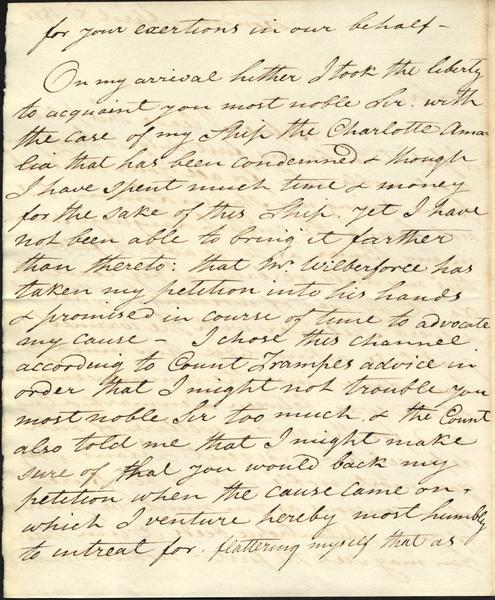 for your exertions in our behalf –
On my arrival hither I took the liberty
to acquaint you most noble Sir. with
the case of my Ship the Charlotte Ama-
lia that has been condemned & though
I have spent much time & money
for the sake of this Ship. yet I have
not been able to bring it farther
than thereto: that Mr. Wilberforce has
taken my petition into his hands
& promised in course of time to advocate
my cause – I chose this channel
according to Count Trampes advice in
order that I might not trouble you
most noble Sir too much. & the Count
also told me that I might make
sure of that you would back my
petition when the cause came on –
which I venture hereby most humbly
to intreat for. flattering myself that as